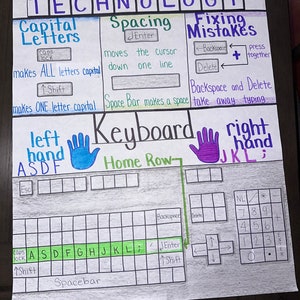 TECHNOLOGY
Capital Letters
Caps Lock
makes ALL letters capital
↑Shift
makes ONE letter capital
Spacing
↓Enter
moves the cursor down one line
Space Bar makes a space
Fixing Mistakes
←Backspace
+
press together
Delete
Backspace and Delete take away typing
left hand
ASDF
Keyboard
right hand
JKL;
Home Row
Esc
Backspace
Caps Lock
A S D F G H J K L ; '
↓Enter
↑Shift
↑Shift
Spacebar